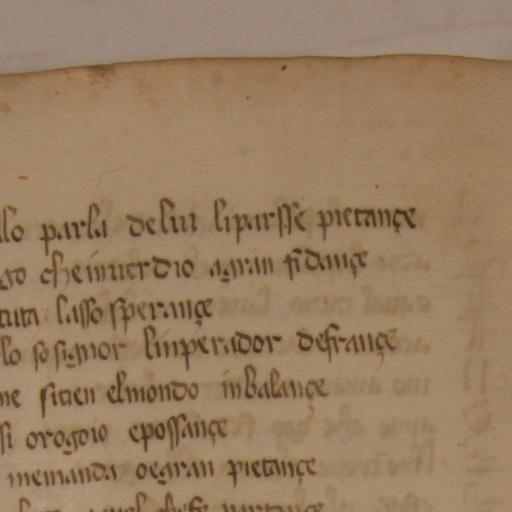 llo parla de lui li parsse pietançe
go che inuerdio a gran fidançe
tuta lasso sperançe
lo so signor linperador de françe
me si tien el mondo in balançe
si orogoio e possançe
me manda oe gran pietançe